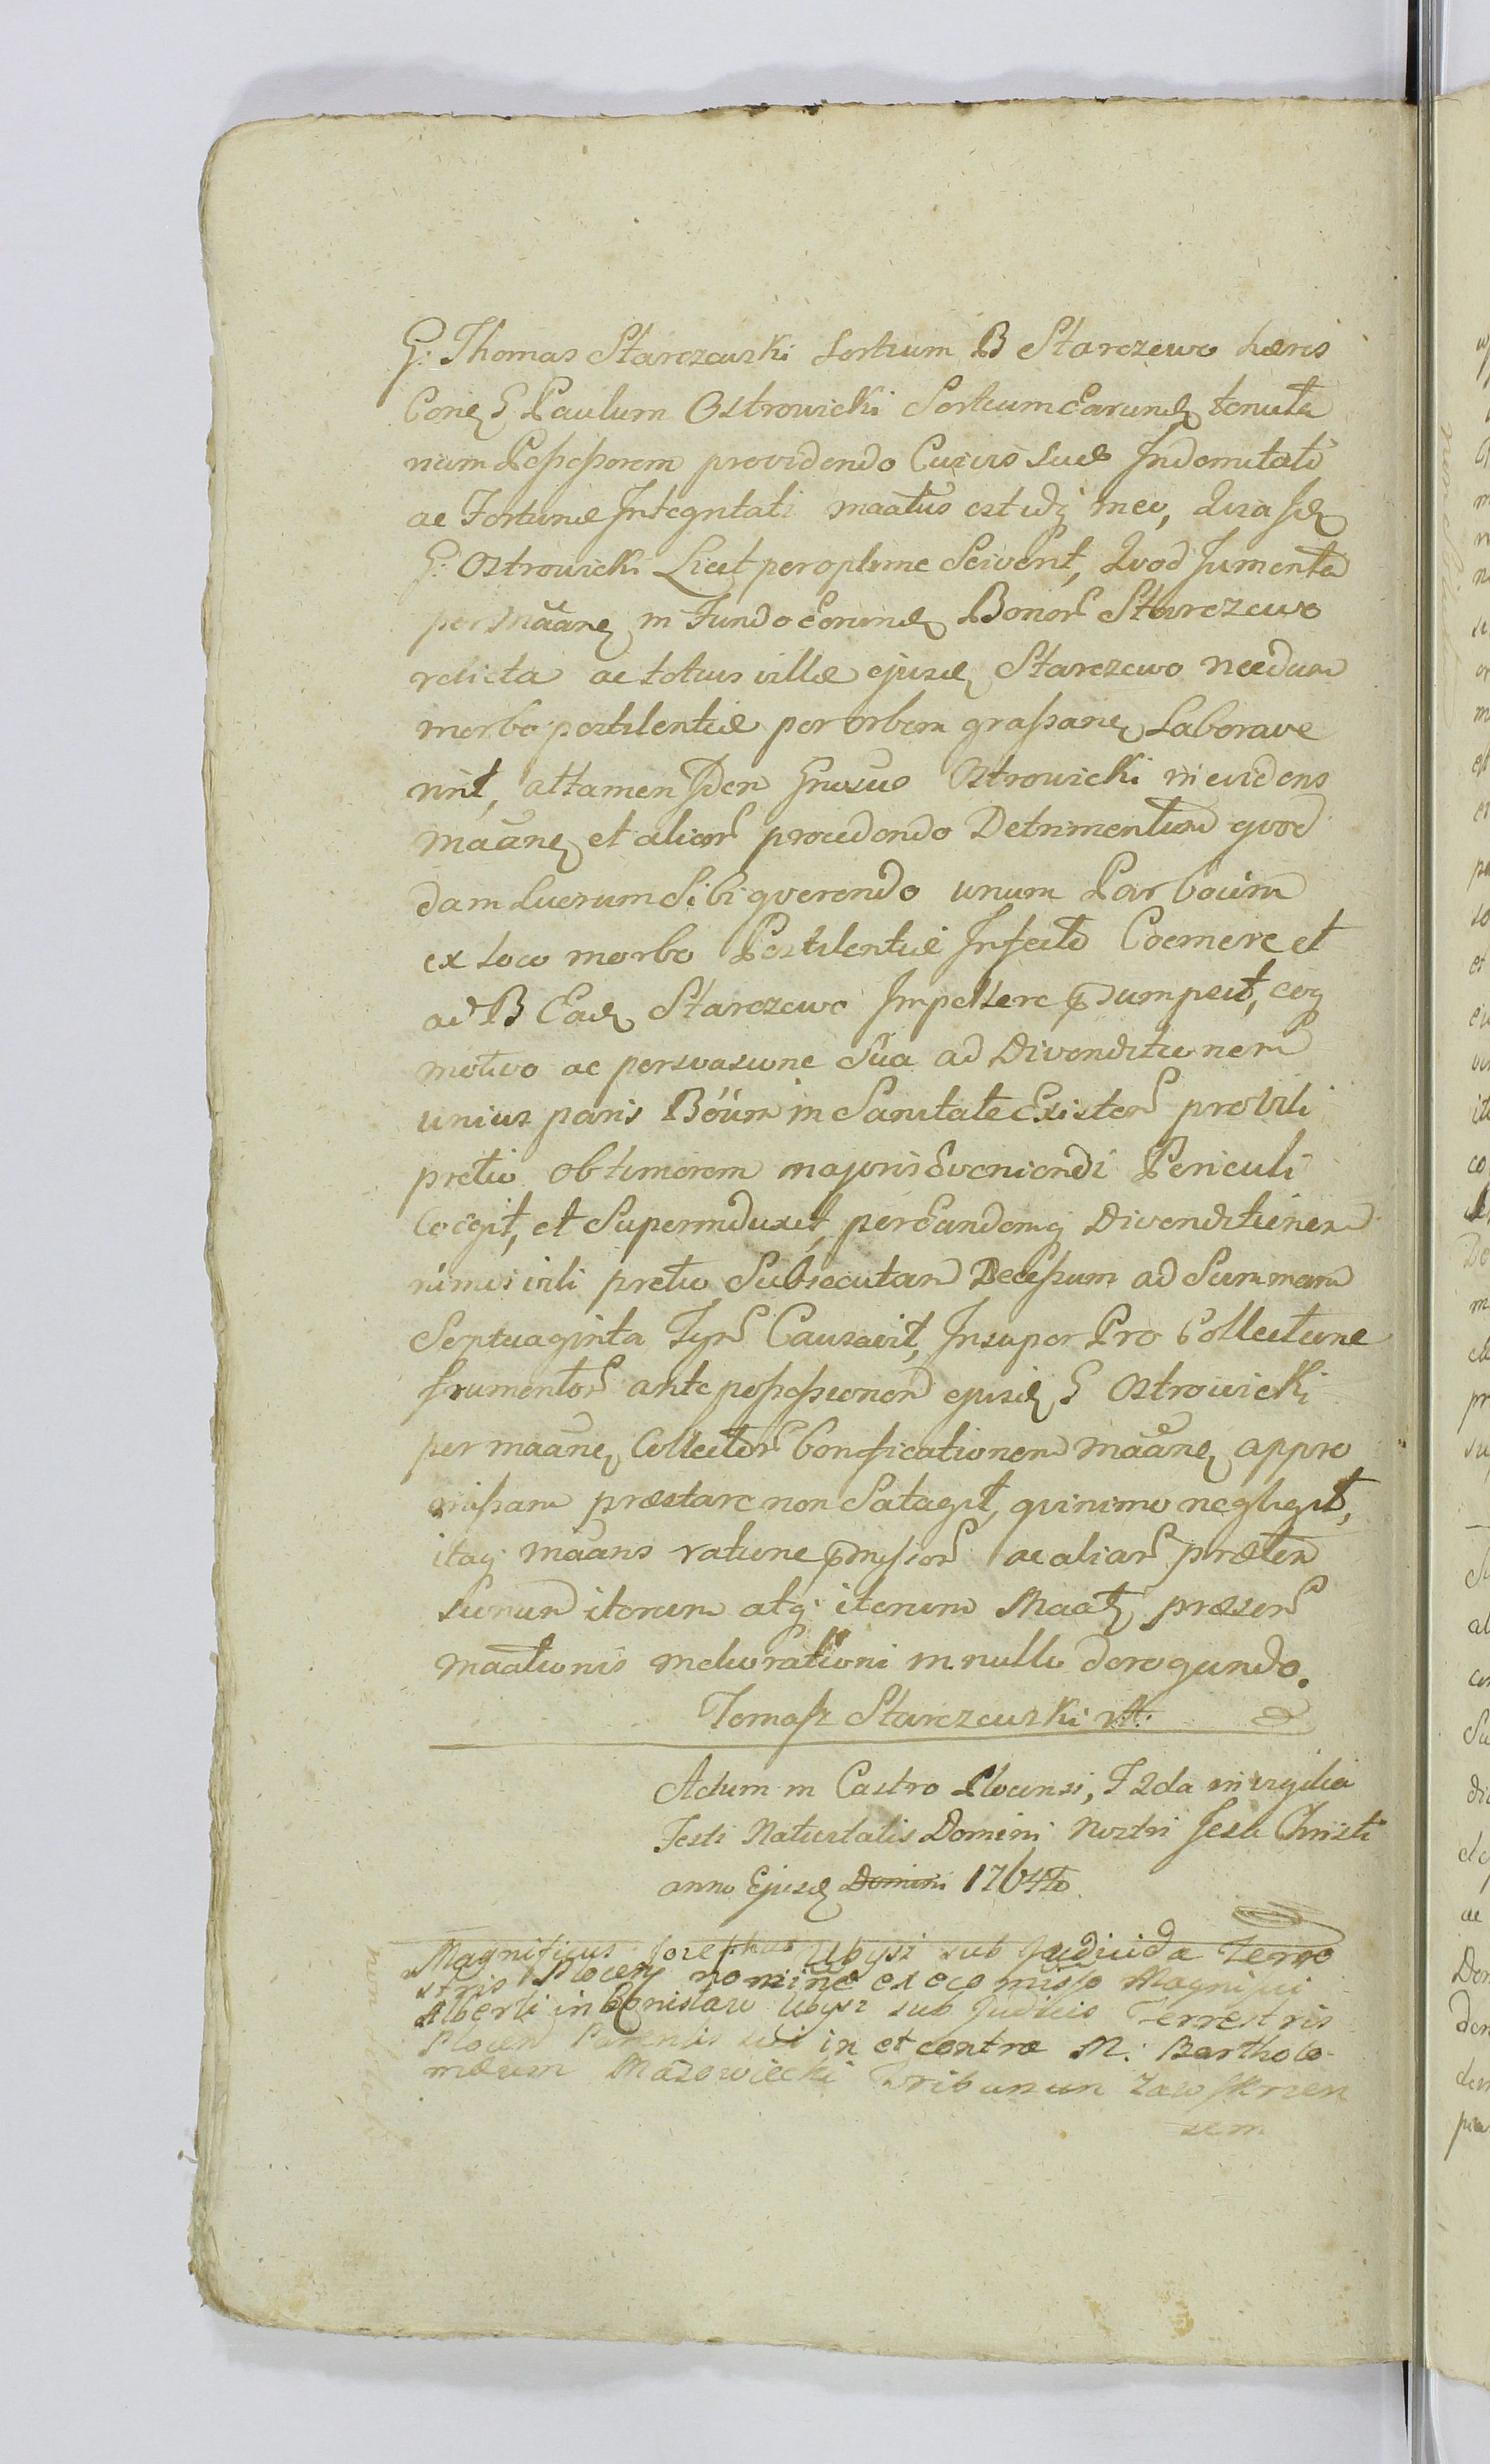 G: Thomas Starczewski Sortium B Starczewo hæres
Conq G Paulum Ostrowicki Sortium Earundq tenuta
rium Possessorem providendo Curius suæ Indemnitati
ac Fortunæ Integritati maatus est idq meo, Quia Idq
G: Ostrowicki Licet peroptime Sciverit, Quod Jumenta
per Maanq in Fundo Eorundq Bonor Starczewo
relicta ac totius villæ ejusdq Starczewo necdum
morbo pestilentiæ per orbem grassanq Laborave
rint, attamen Idem Gnosus Ostrowicki in evidens
Maanq et alior procedendo Detrimentum quod
dam Lucrum Sibi qverendo unum Par boum
ex Loco morbo Pestilentiæ Infecto Coemere et
ad B Eadq Starczewo Impellere psumpsit, eoq
motivo ac persvasione Sua ad Divenditionem
unius paris Boum in Sanitate Existen pro vili
pretio ob timorem majoris Eveniendi Periculi
Coegit, et Superinduxit, per Eandemq Divenditionem
nimis vili pretio Subsecutam Decessum ad Summam
Septuaginta Tynf Causavit, Insuper Pro Collectione
frumentor ante possessionem ejusdq G Ostrowicki
per maanq Collector Bonificationem maanq appro
missam præstare non Satagit, qvinimo negligit,
itaq maans ratione pmissor ac aliar præten
sionum iterum atq iterum Maatq præsen
maationis meliorationi in nullo derogando.
Tomasz Starczewski mp.
Actum in Castro Plocensi, F 2da in vigilia
Festi Nativitatis Domini Nostri Jesu Christi
anno Ejusdq Domini 1764to
Magnificus Josephus Ubysz sub Judicida Terre
stris Plocen nomine ex eo misso Magnifici
Alberti in Bonisław Ubysz sub Judicis Terrestris
Plocen Parentis sui in et contra M: Bartholo-
mæum Mazowiecki Tribunum Zawskrzen
sem